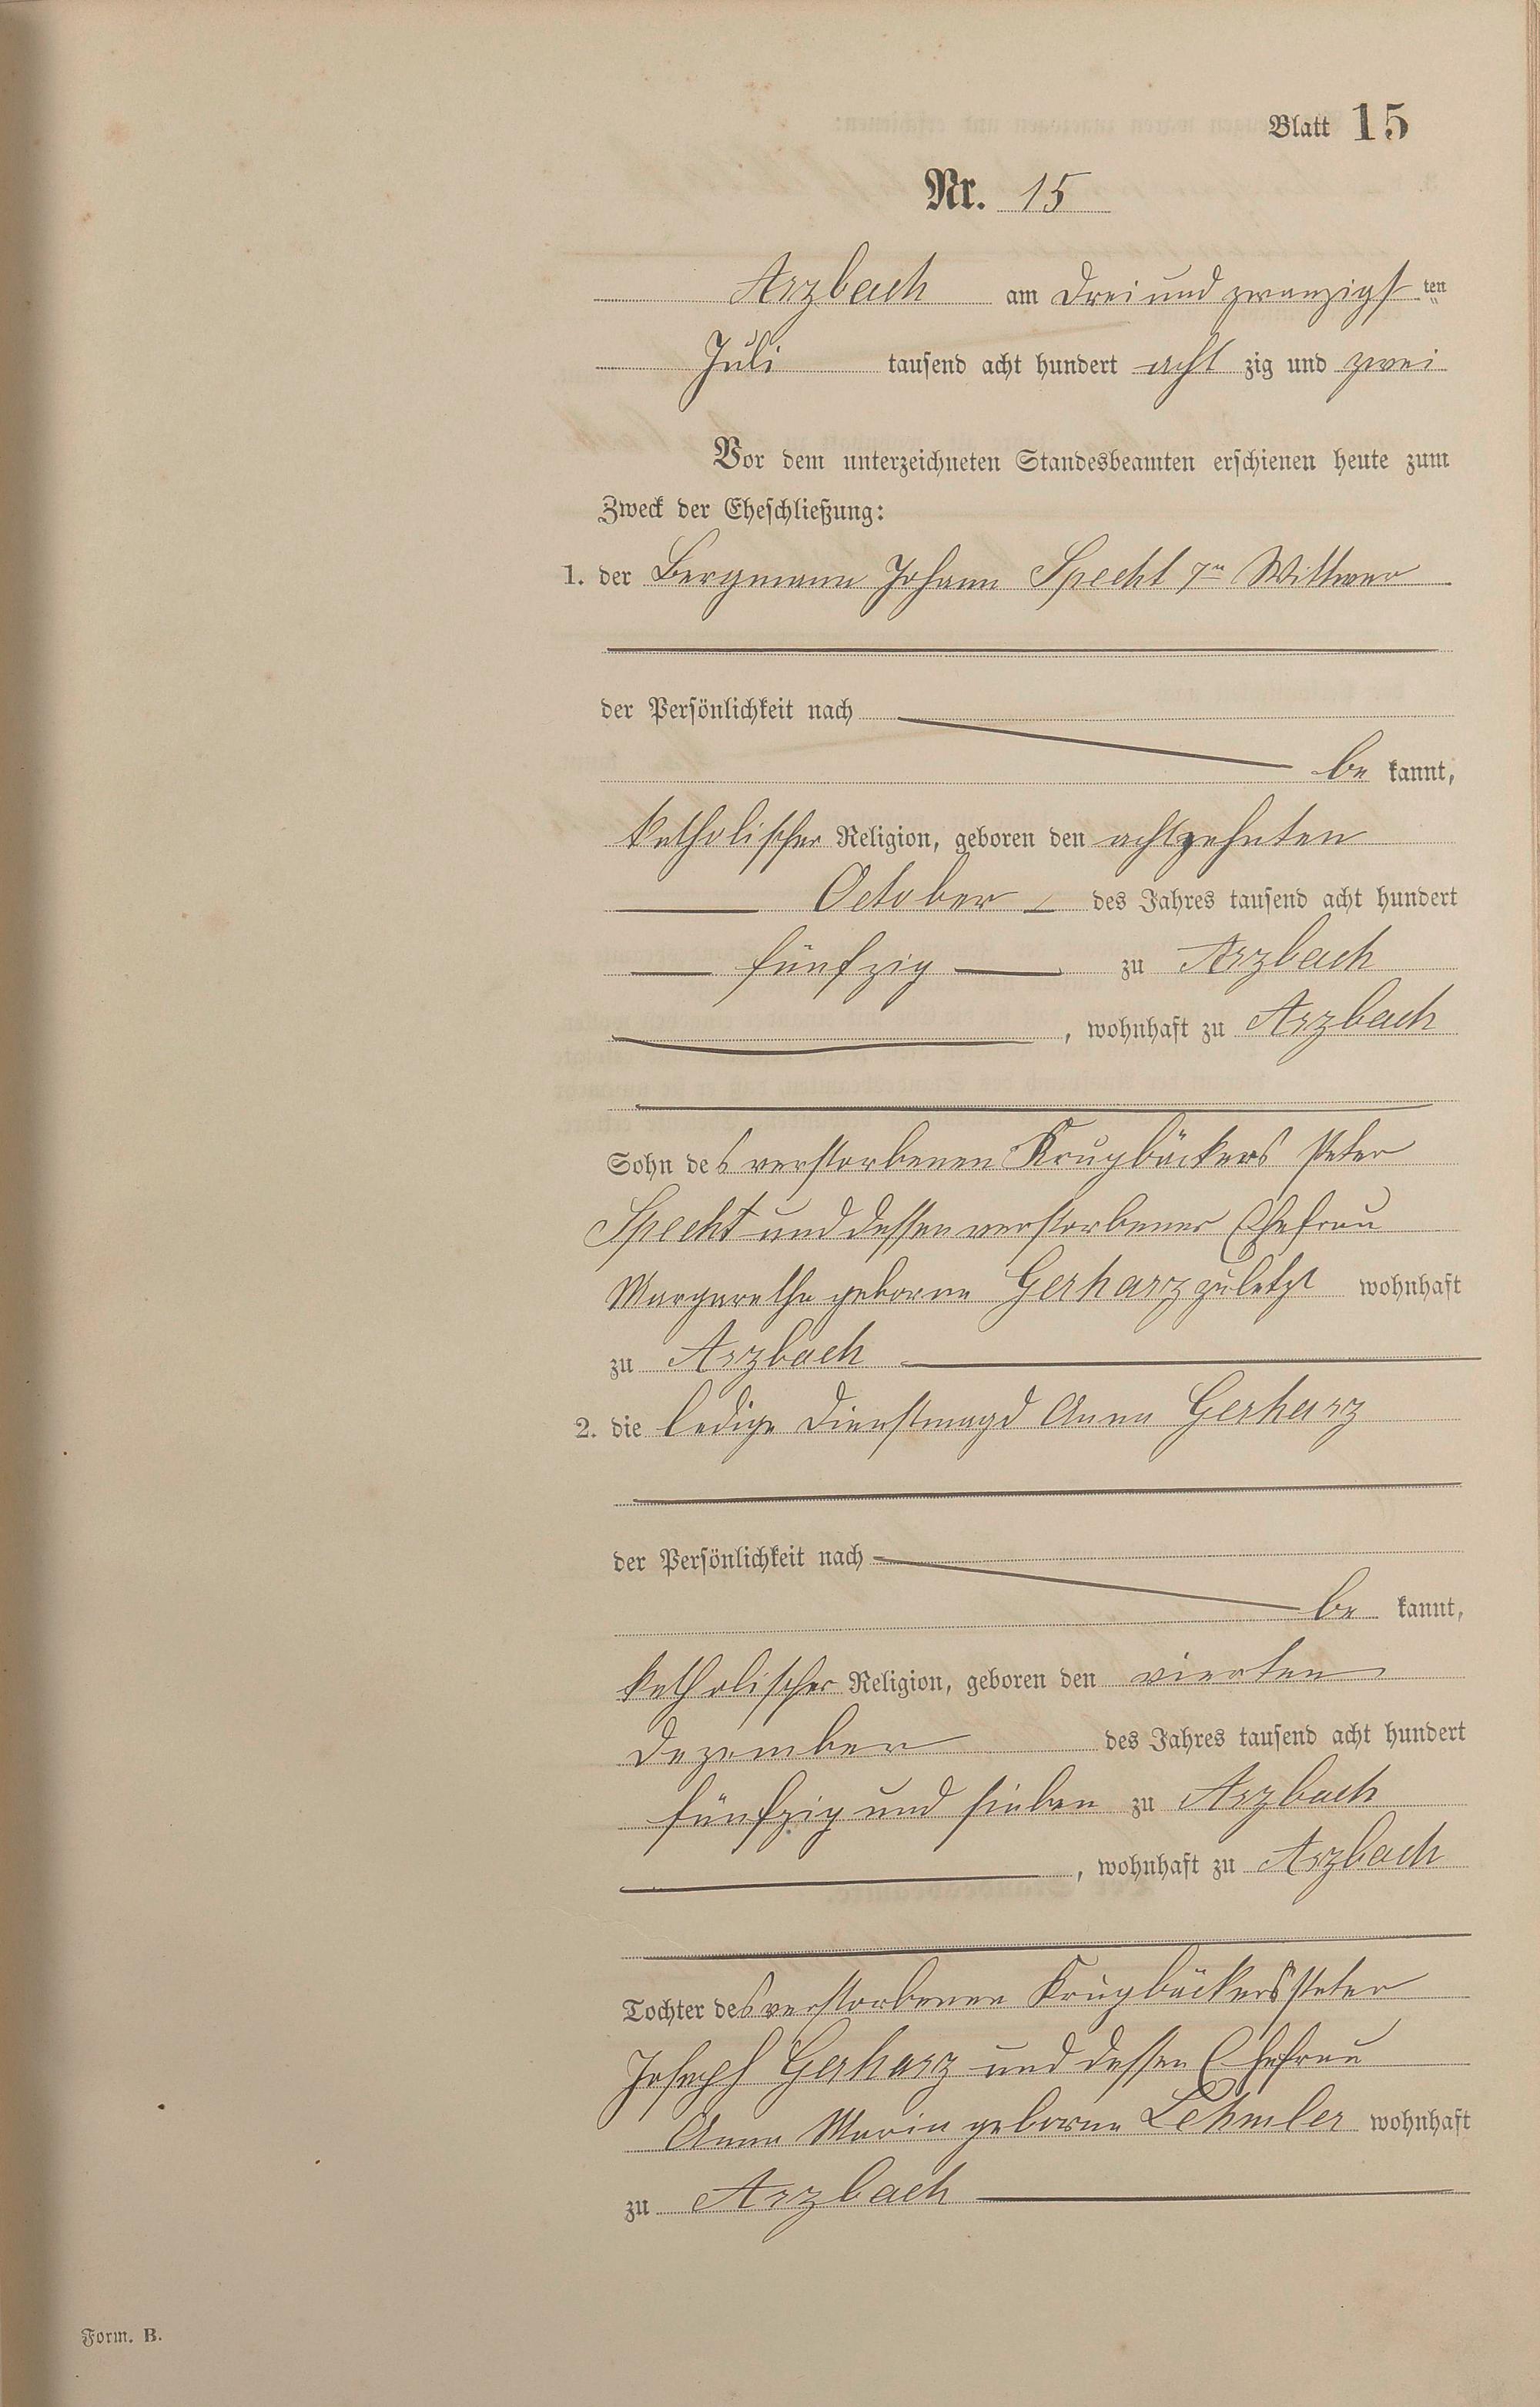 Blatt 15
Nr. 15
Arzbach am Drei und zwanzigsten
Juli tausend acht hundert acht zig und zwei
Vor dem unterzeichneten Standesbeamten erschienen heute zum
Zweck der Eheschließung:
1. der Bergmann Johann Specht 7r Wittwer
der Persönlichkeit nach
be kannt,
katholischer Religion, geboren den achtzehnten
October des Jahres tausend acht hundert
fünfzig zu Arzbach
, wohnhaft zu Arzbach
Sohn des verstorbenen Krugbäckers Peter
Specht und dessen verstorbener Ehefrau
Margarethe geborne Gerharz zuletzt wohnhaft
zu Arzbach
2. die ledige Dienstmagd Anna Gerharz
der Persönlichkeit nach
be kannt,
katholischer Religion, geboren den vierten
Dezember des Jahres tausend acht hundert
fünfzig und sieben zu Arzbach
, wohnhaft zu Arzbach
Tochter des verstorbenen Krugbäckers Peter
Joseph Gerharz und dessen Ehefrau
Anna Maria geborne Lehmler wohnhaft
zu Arzbach
Form. B.